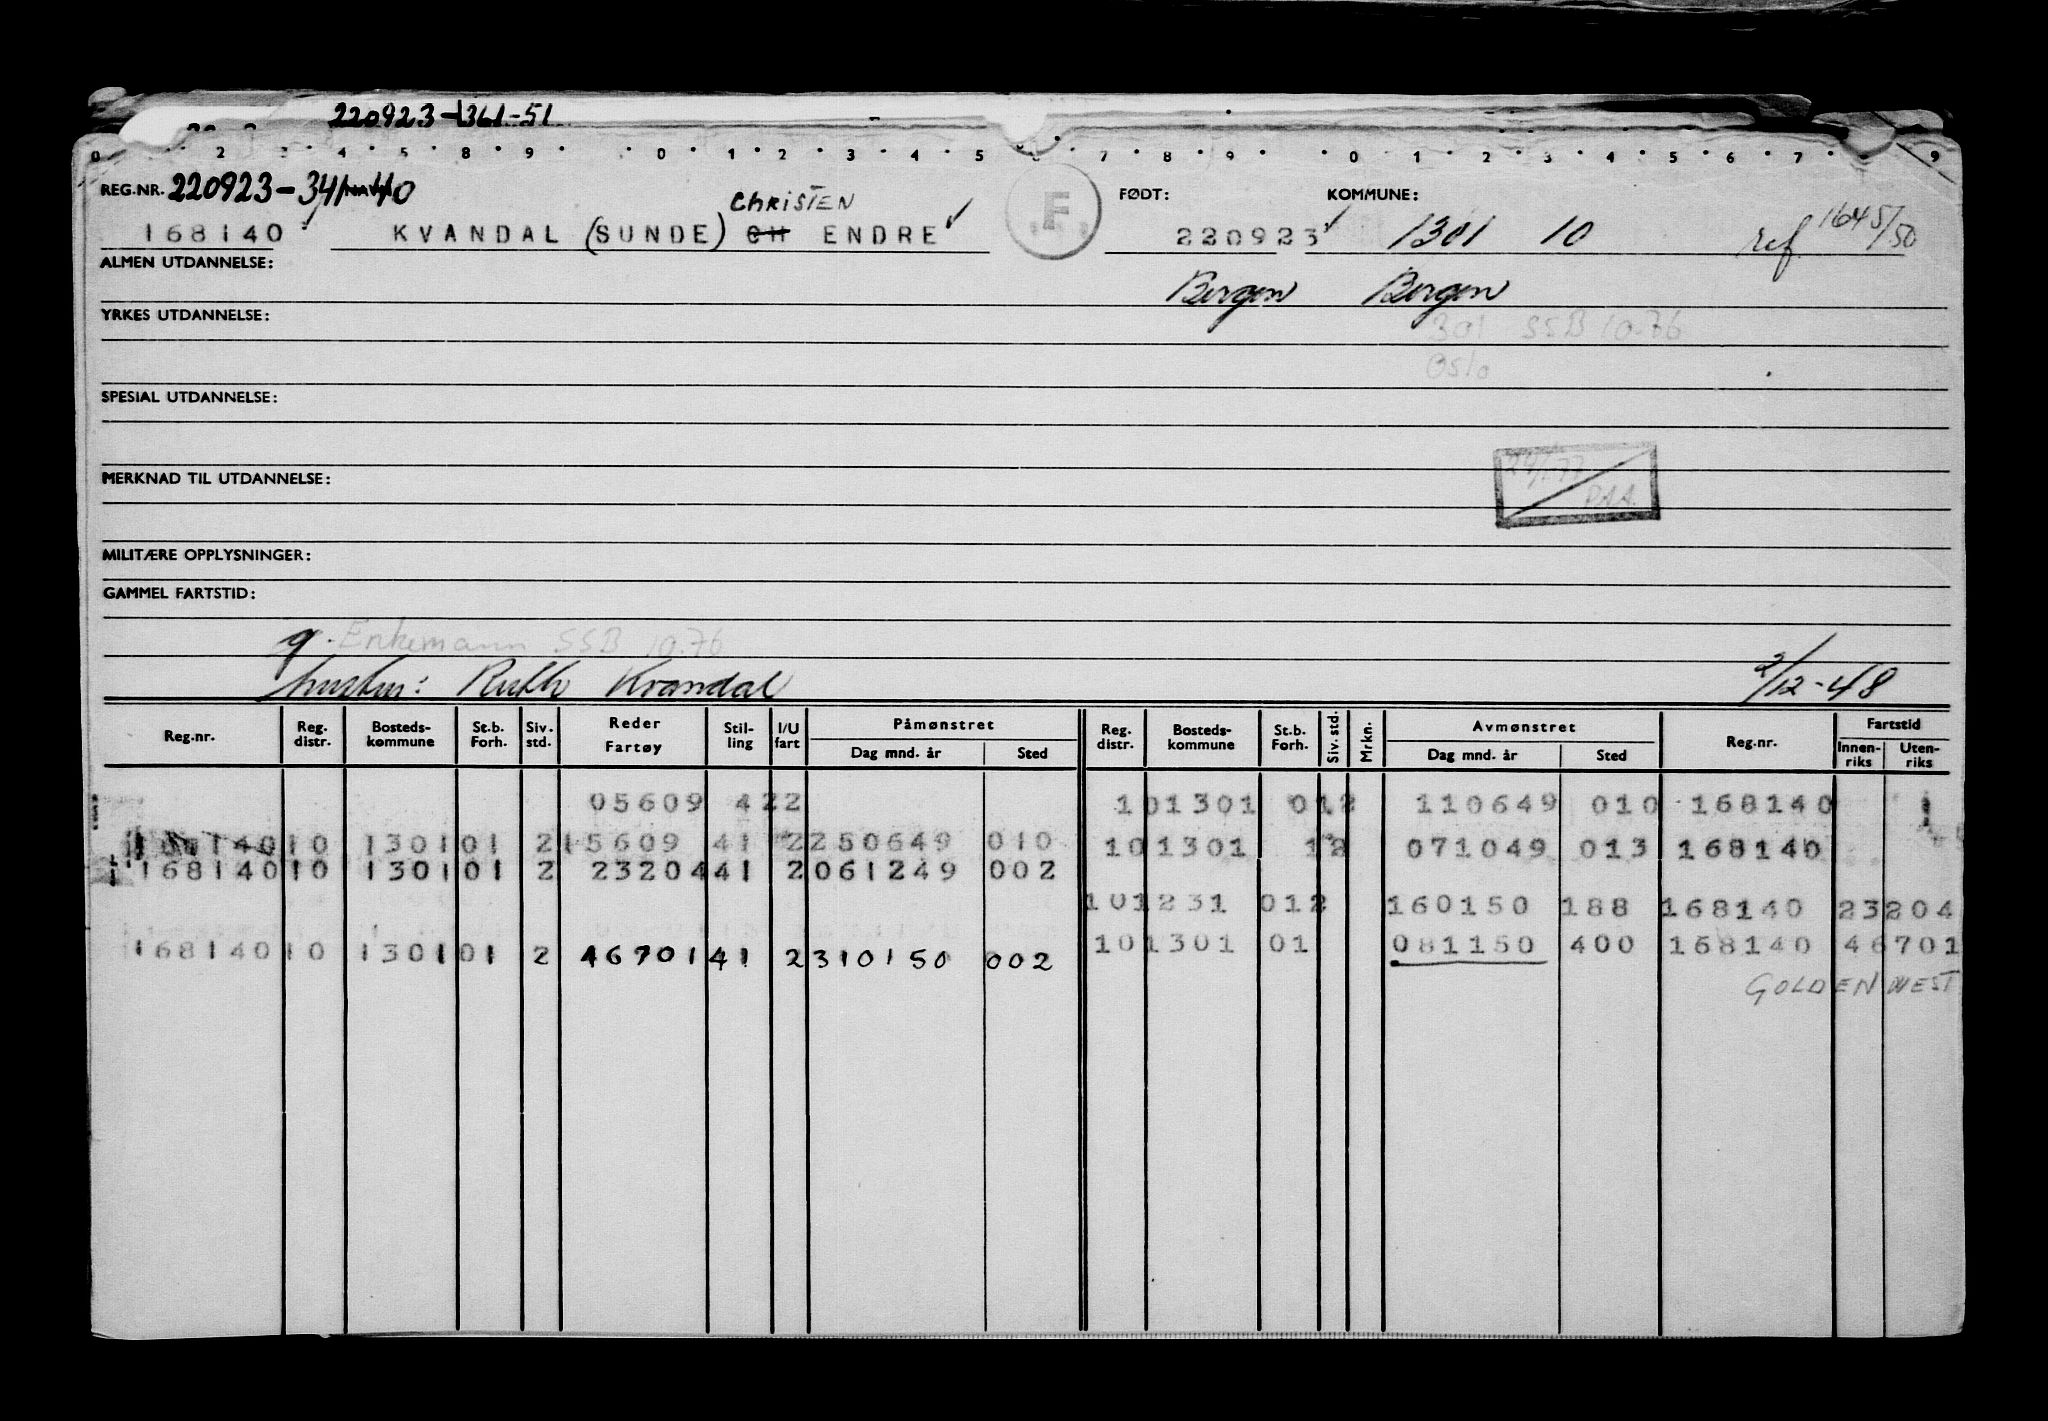 220923-1361-51
0 2 3 4 5 8 9 0 1 2 3 4 5 6 7 8 9 0 1 2 3 4 5 6 7 9
REG.NR. 220923-341 40 CHRISTEN F FØDT: KOMMUNE:
168140 KVANDAL (SUNDE) CH ENDRE 220923 1301 10 ref. 1645/50
ALMEN UTDANNELSE:
Bergen Bergen
YRKES UTDANNELSE: 301 SSB 10.76
Oslo
SPESIAL UTDANNELSE:
MERKNAD TIL UTDANNELSE:
PAA
MILITÆRE OPPLYSNINGER:
GAMMEL FARTSTID:
g. Enkemann SSB 10.76
hustru: Ruth Kvandal 2/12-48
Reg.nr. Reg. distr. Bosteds- kommune St.b. Forh. Siv. std. Reder Fartøy Stil- ling I/U fart Påmønstret Dag mnd. år Sted Reg. distr. Bosteds- kommune St.b. Forh. Siv. std. Mrkn. Avmønstret Dag mnd. år Sted Reg.nr. Fartstid Innen- riks Uten- riks
05609 422 101301 012 110649 010 168140
168140 10 1301 01 2 15609 41 2 250649 010 101301 12 071049 013 168140
168140 10 1301 01 2 23204 41 2 061249 002
101231 012 160150 188 168140 23204
168140 10 1301 01 2 46701 41 2 310150 002 101301 01 081150 400 168140 46701
GOLDEN WEST